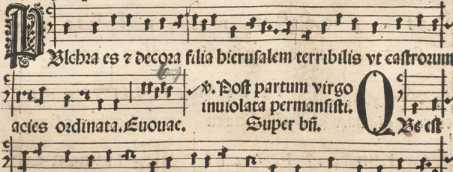 PBlchra es ⁊ decora filia hierusalem terribilis vt castrorum
acies ordinata. Euouae.
℣. Post partum virgo
inuiolata permansisti.
Super bñ.
OBe est